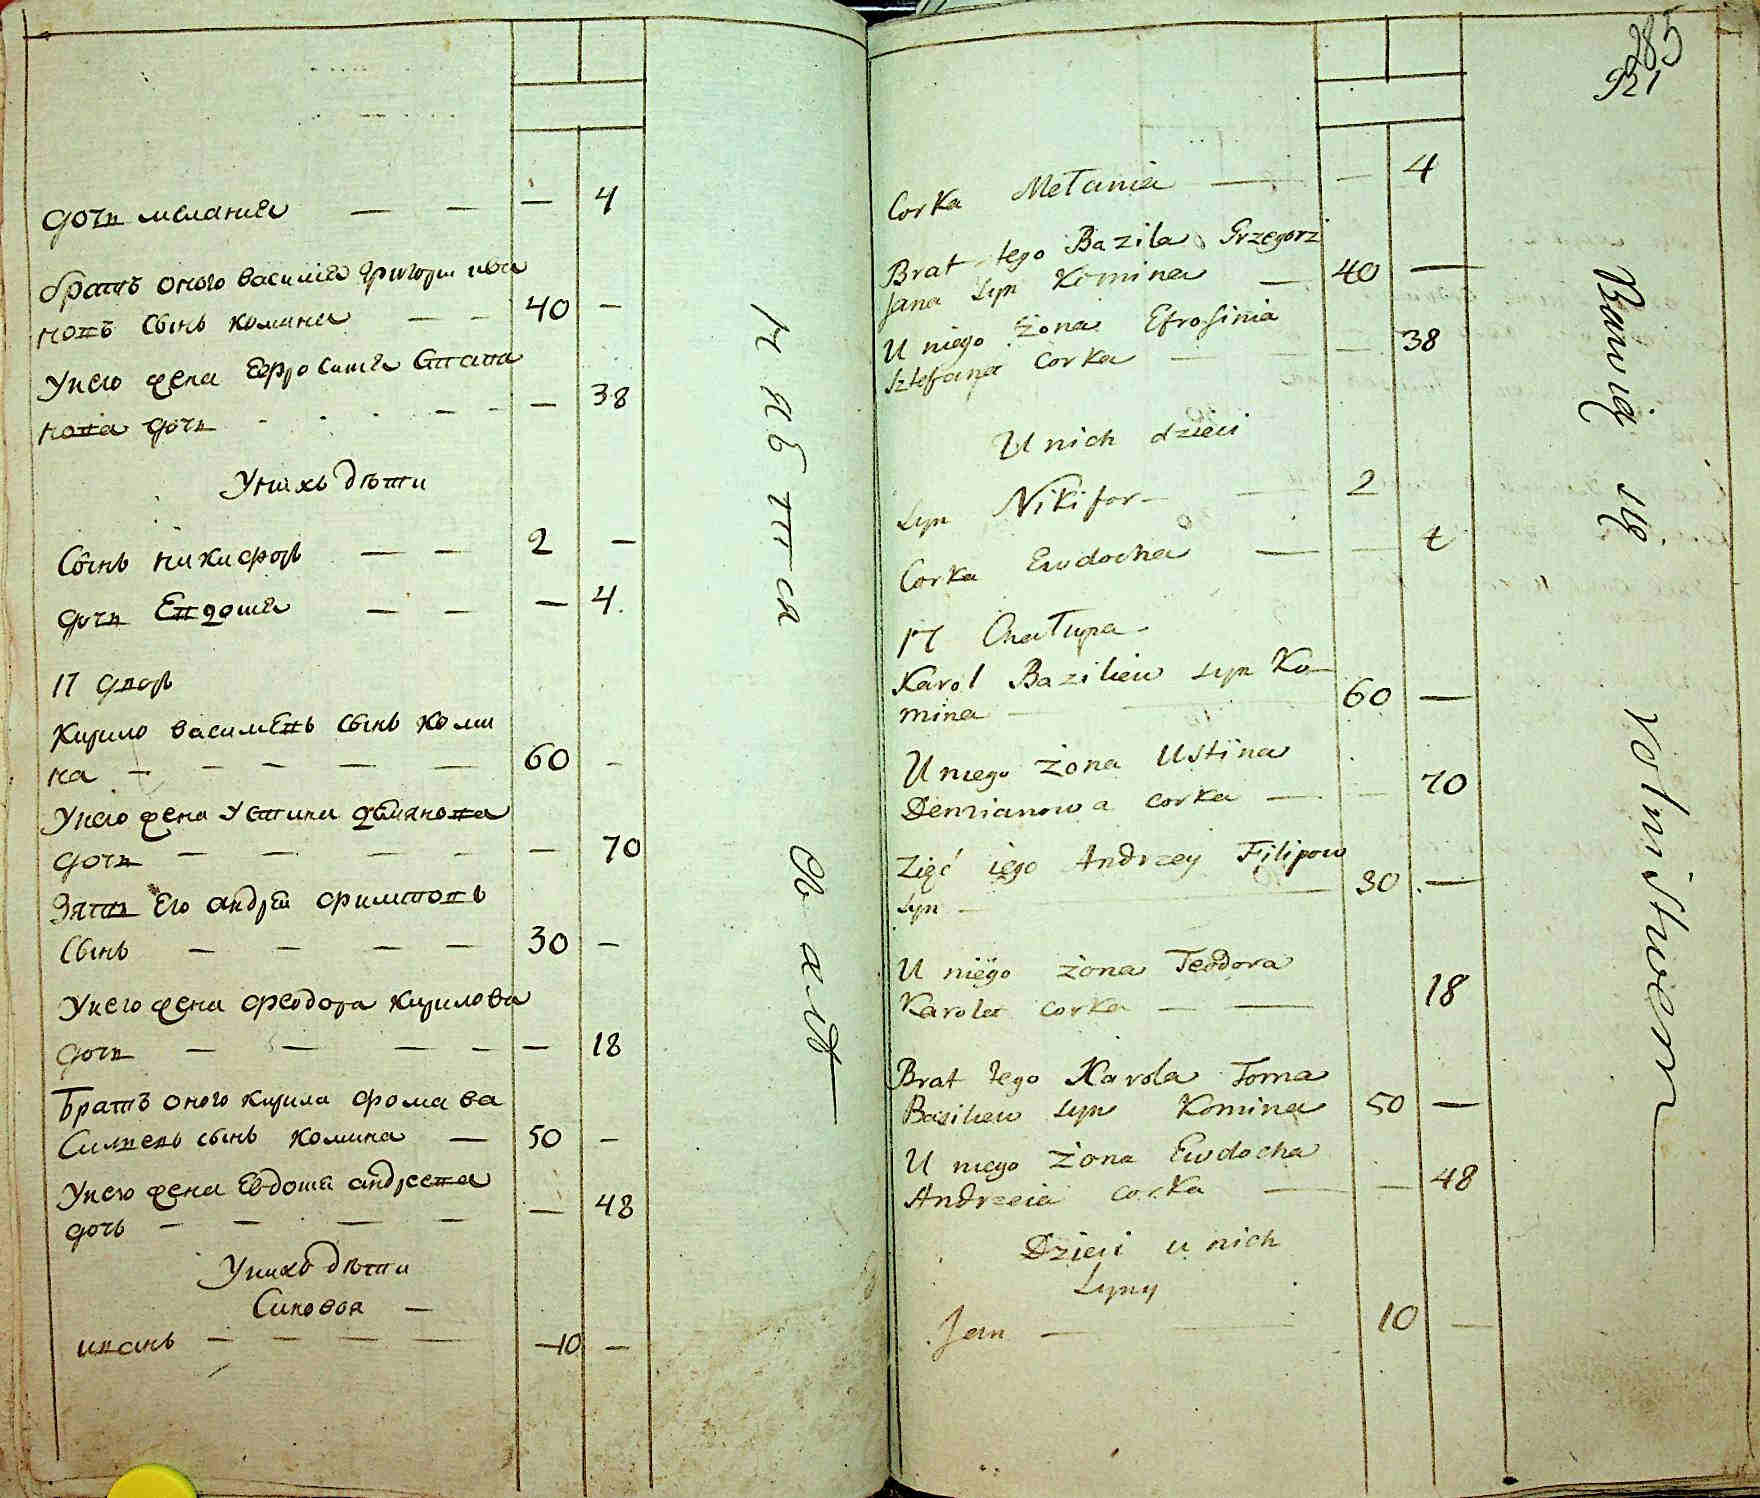 дочь мелания — — — 4
братъ оного василия григори ива
новъ сынъ комина — — 40 —
Унего жена Ефросиния Степа
нова дочь — — — 38
Унихъ дѣти
Сынъ никифоръ — — 2 —
дочь Евдокия — — — 4
17 дворъ
Кирило васильевъ сынъ коми
на — — — — — 60 —
Унего жена Устина демянова
дочь — — — — — 70
Зять Его андрей филиповъ
Сынъ — — — — 30 —
Унего жена феодора кирилова
дочь — — — — — 18
Братъ оного кирила фома ва
силиевъ сынъ комина — 50 —
Унего жена Евдокия андреева
дочь — — — — — 48
Унихъ дѣти
Синовья —
иванъ — — — — 10 —
285
921
Corka Mełania — — 4
Brat tego Bazila Grzegorz
Jana syn Komina — 40 —
U niego żona Efrosinia
Sztefana corka — — 38
U nich dzieci
syn Nikifor — — 2
Corka Ewdocha — — 4
17 Chałupa
Karol Baziliew syn Ko-
mina — — 60 —
U niego żona Ustina
Demianowa corka — — 70
Zięć iego Andrzey Filipow
syn — — 30 —
U niego żona Teodora
Karola corka — — 18
Brat tego Karola Toma
Basiliew syn Komina 50 —
U niego żona Ewdocha
Andrzeia corka — — 48
Dzieci u nich
Syny
Jan — — 10 —
Bawią się rolnistwem